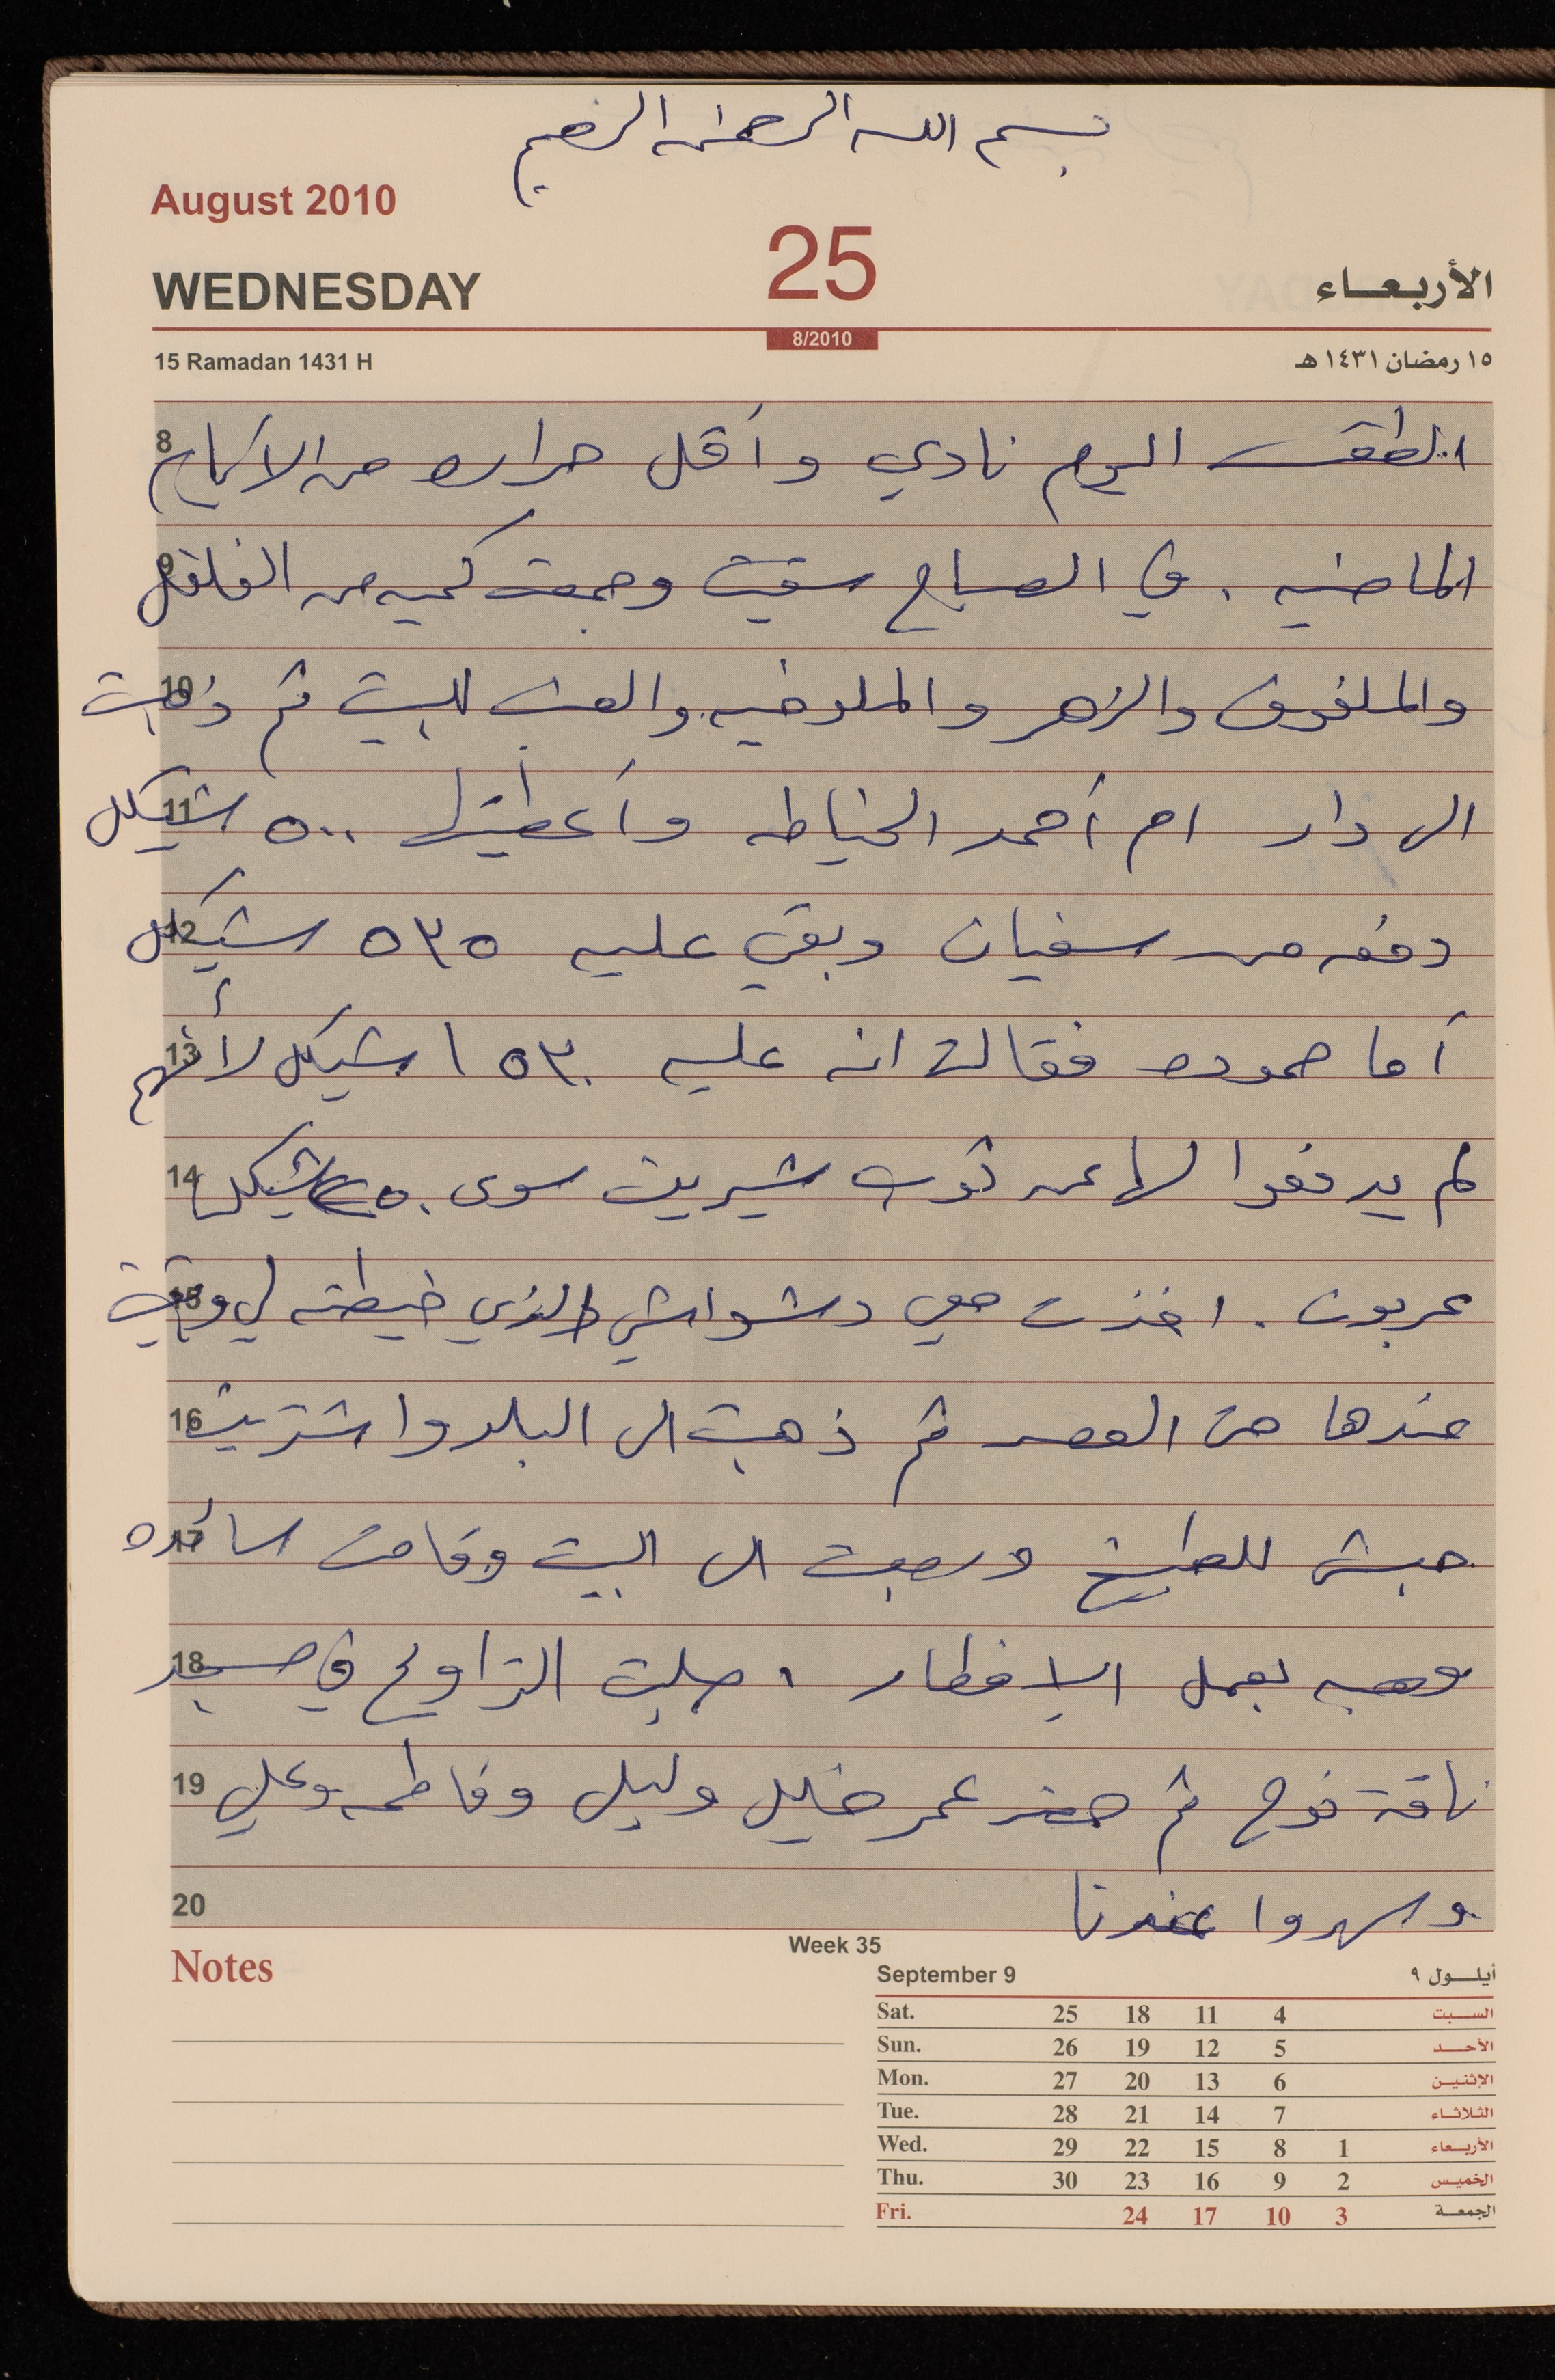 بسم الله الرحمن الرحيم
August 2010
25
WEDNESDAY
الأربعاء
8/2010
15 Ramadan 1431 H
١٥ رمضان ١٤٣١ هـ
8
الطقس اليوم نادي وأقل حراره من الأيام
9
الماضيه . في الصباح سقيت وجمعت كميه من الفلفل
10
والملفوف والزهر والملوخيه والعنب للبيت ثم ذهبت
11
الى دار ام أحمد الخياطه وأعطيتها ٥٠٠ شيكل
12
دفعه من سفيان وبقي عليه ٥٣٥ شيكل
13
أما حموده فقالت انه عليه ١٥٣٠ شيكل لأنهم
14
لم يدفعوا لها عن ثوب شيرين سوى شيكل
15
عربون . اخذت معي دشداشي الذي خيطته لي وبقيت
16
عندها حتى العصر ثم ذهبت الى البلد واشتريت
17
حبش للطبخ ورجعت الى البيت وقامت سائده
18
وهبه بعمل الإفطار . صليت التراويح في مسجد
19
ناقة نوح ثم حضر عمر خليل وليلى وفاطمه وعلي
20
وسهروا عندنا
Notes
Week 35
September 9
أيلول ٩
Sat. 25 18 11 4 السبت
Sun. 26 19 12 5 الأحد
Mon. 27 20 13 6 الإثنين
Tue. 28 21 14 7 الثلاثاء
Wed. 29 22 15 8 1 الأربعاء
Thu. 30 23 16 9 2 الخميس
Fri. 24 17 10 3 الجمعة